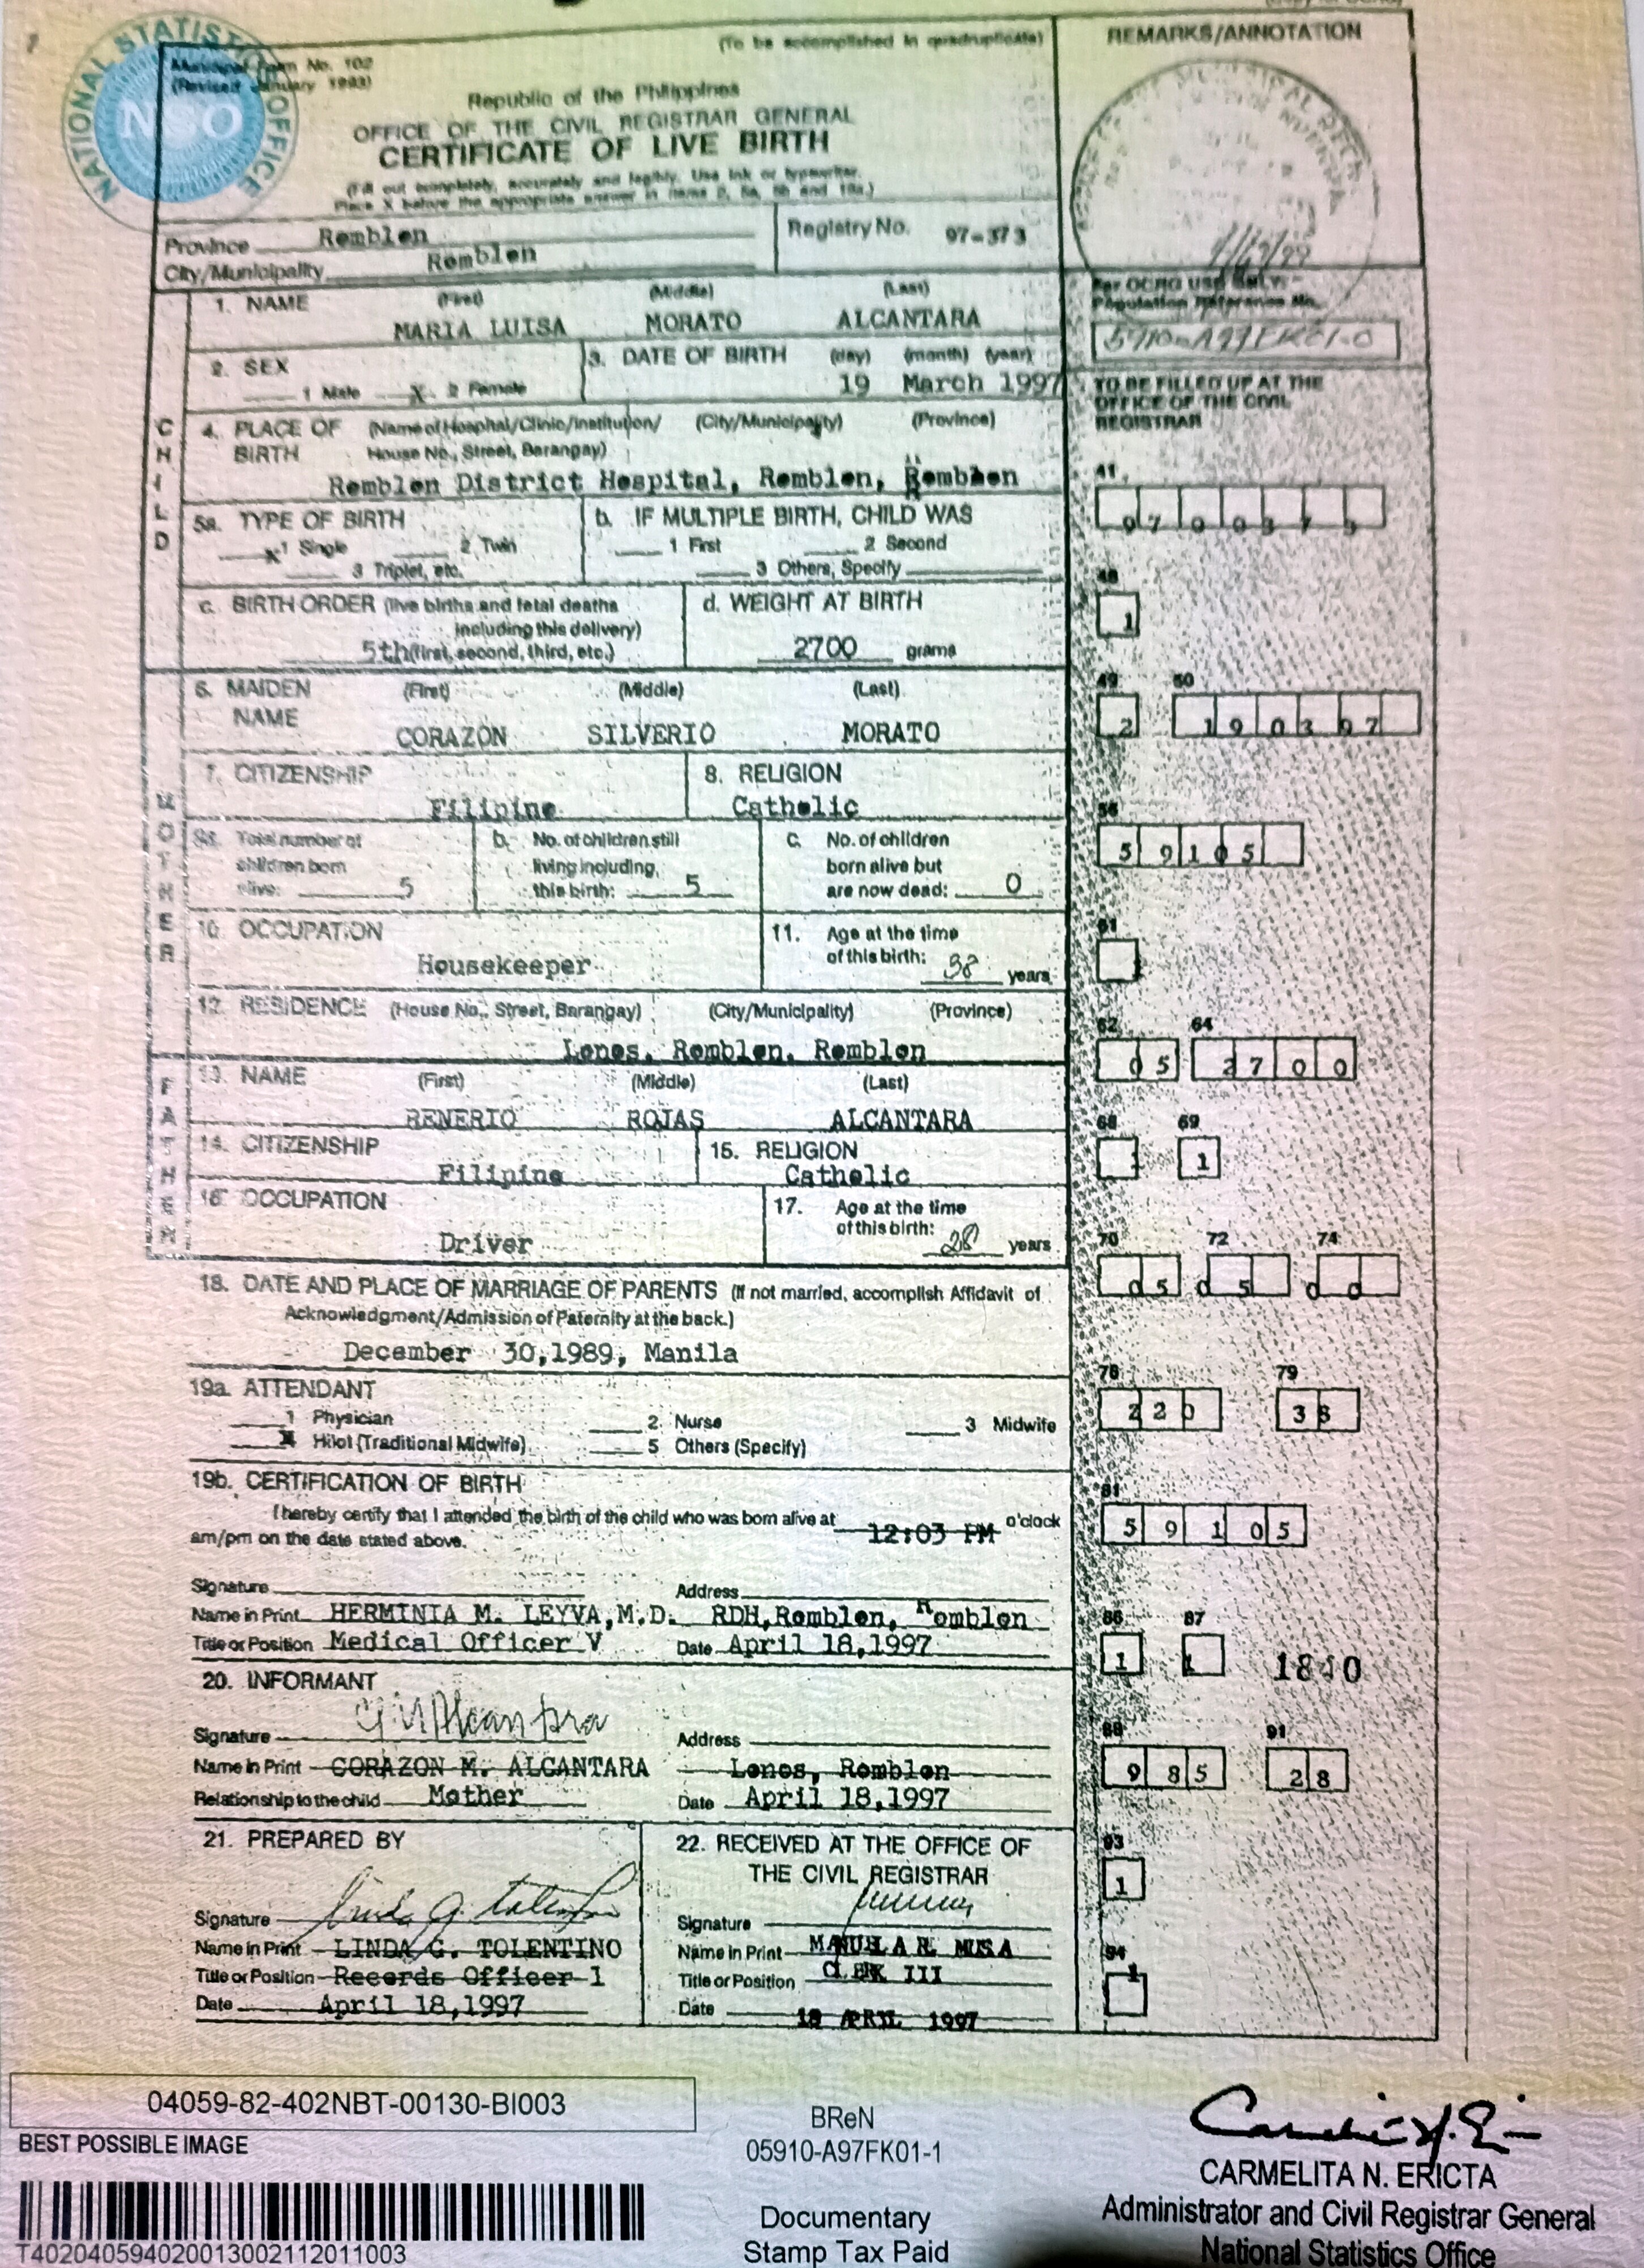 (To be accomplished in quadruplicate)
REMARKS/ANNOTATION
NATIONAL STATISTICS OFFICE
NSO
Municipal Form No. 102
(Revised January 1993)
Republic of the Philippines
OFFICE OF THE CIVIL REGISTRAR GENERAL
CERTIFICATE OF LIVE BIRTH
(Fill out completely, accurately and legibly. Use ink or typewriter.
Place X before the appropriate answer in items 2, 5a, 5b and 19a.)
Province Romblon
City/Municipality Romblon
Registry No. 97-373
For OCRG USE ONLY:
Population Reference No.
1. NAME (First) (Middle) (Last)
MARIA LUISA MORATO ALCANTARA
2. SEX
1 Male X 2 Female
3. DATE OF BIRTH (day) (month) (year)
19 March 1997
TO BE FILLED UP AT THE
OFFICE OF THE CIVIL
REGISTRAR
CHILD
4. PLACE OF BIRTH (Name of Hospital/Clinic/Institution/ (City/Municipality) (Province)
House No., Street, Barangay)
Romblon District Hospital, Romblon, Romblon
41
9700373
5a. TYPE OF BIRTH
x 1 Single 2 Twin
3 Triplet, etc.
b. IF MULTIPLE BIRTH, CHILD WAS
1 First 2 Second
3 Others, Specify
48
1
c. BIRTH ORDER (live births and fetal deaths
including this delivery)
5th (first, second, third, etc.)
d. WEIGHT AT BIRTH
2700 grams
MOTHER
6. MAIDEN NAME (First) (Middle) (Last)
CORAZON SILVERIO MORATO
49 50
2 190397
7. CITIZENSHIP
Filipino
8. RELIGION
Catholic
56
59105
9a. Total number of
children born
alive: 5
b. No. of children still
living including
this birth: 5
c. No. of children
born alive but
are now dead: 0
10. OCCUPATION
Housekeeper
11. Age at the time
of this birth: 38 years
61
12. RESIDENCE (House No., Street, Barangay) (City/Municipality) (Province)
Lonos, Romblon, Romblon
62 64
05 2700
FATHER
13. NAME (First) (Middle) (Last)
RENERIO ROJAS ALCANTARA
68 69
1
14. CITIZENSHIP
Filipino
15. RELIGION
Catholic
16. OCCUPATION
Driver
17. Age at the time
of this birth: 28 years
70 72 74
05 05 00
18. DATE AND PLACE OF MARRIAGE OF PARENTS (If not married, accomplish Affidavit of
Acknowledgment/Admission of Paternity at the back.)
December 30,1989, Manila
76 79
220 38
19a. ATTENDANT
1 Physician 2. Nurse 3 Midwife
Hilot (Traditional Midwife) 5 Others (Specify)
19b. CERTIFICATION OF BIRTH
I hereby certify that I attended the birth of the child who was born alive at 12:03 PM o'clock
am/pm on the date stated above.
81
59105
Signature Address
Name in Print HERMINIA M. LEYVA, M.D. RDH, Romblon, Romblon
Title or Position Medical Officer V Date April 18,1997
86 87
1 1 1840
20. INFORMANT
Signature Address
Name in Print CORAZON M. ALCANTARA Lonos, Romblon
Relationship to the child Mother Date April 18,1997
88 91
985 28
21. PREPARED BY
Signature
Name in Print LINDA G. TOLENTINO
Title or Position Records Officer 1
Date April 18,1997
22. RECEIVED AT THE OFFICE OF
THE CIVIL REGISTRAR
Signature
Name in Print MANUELA R. MUSA
Title or Position CLERK III
Date 18 APRIL 1997
93
1
94
1
04059-82-402NBT-00130-BI003
BEST POSSIBLE IMAGE
T402040594020013002112011003
BReN
05910-A97FK01-1
Documentary
Stamp Tax Paid
CARMELITA N. ERICTA
Administrator and Civil Registrar General
National Statistics Office